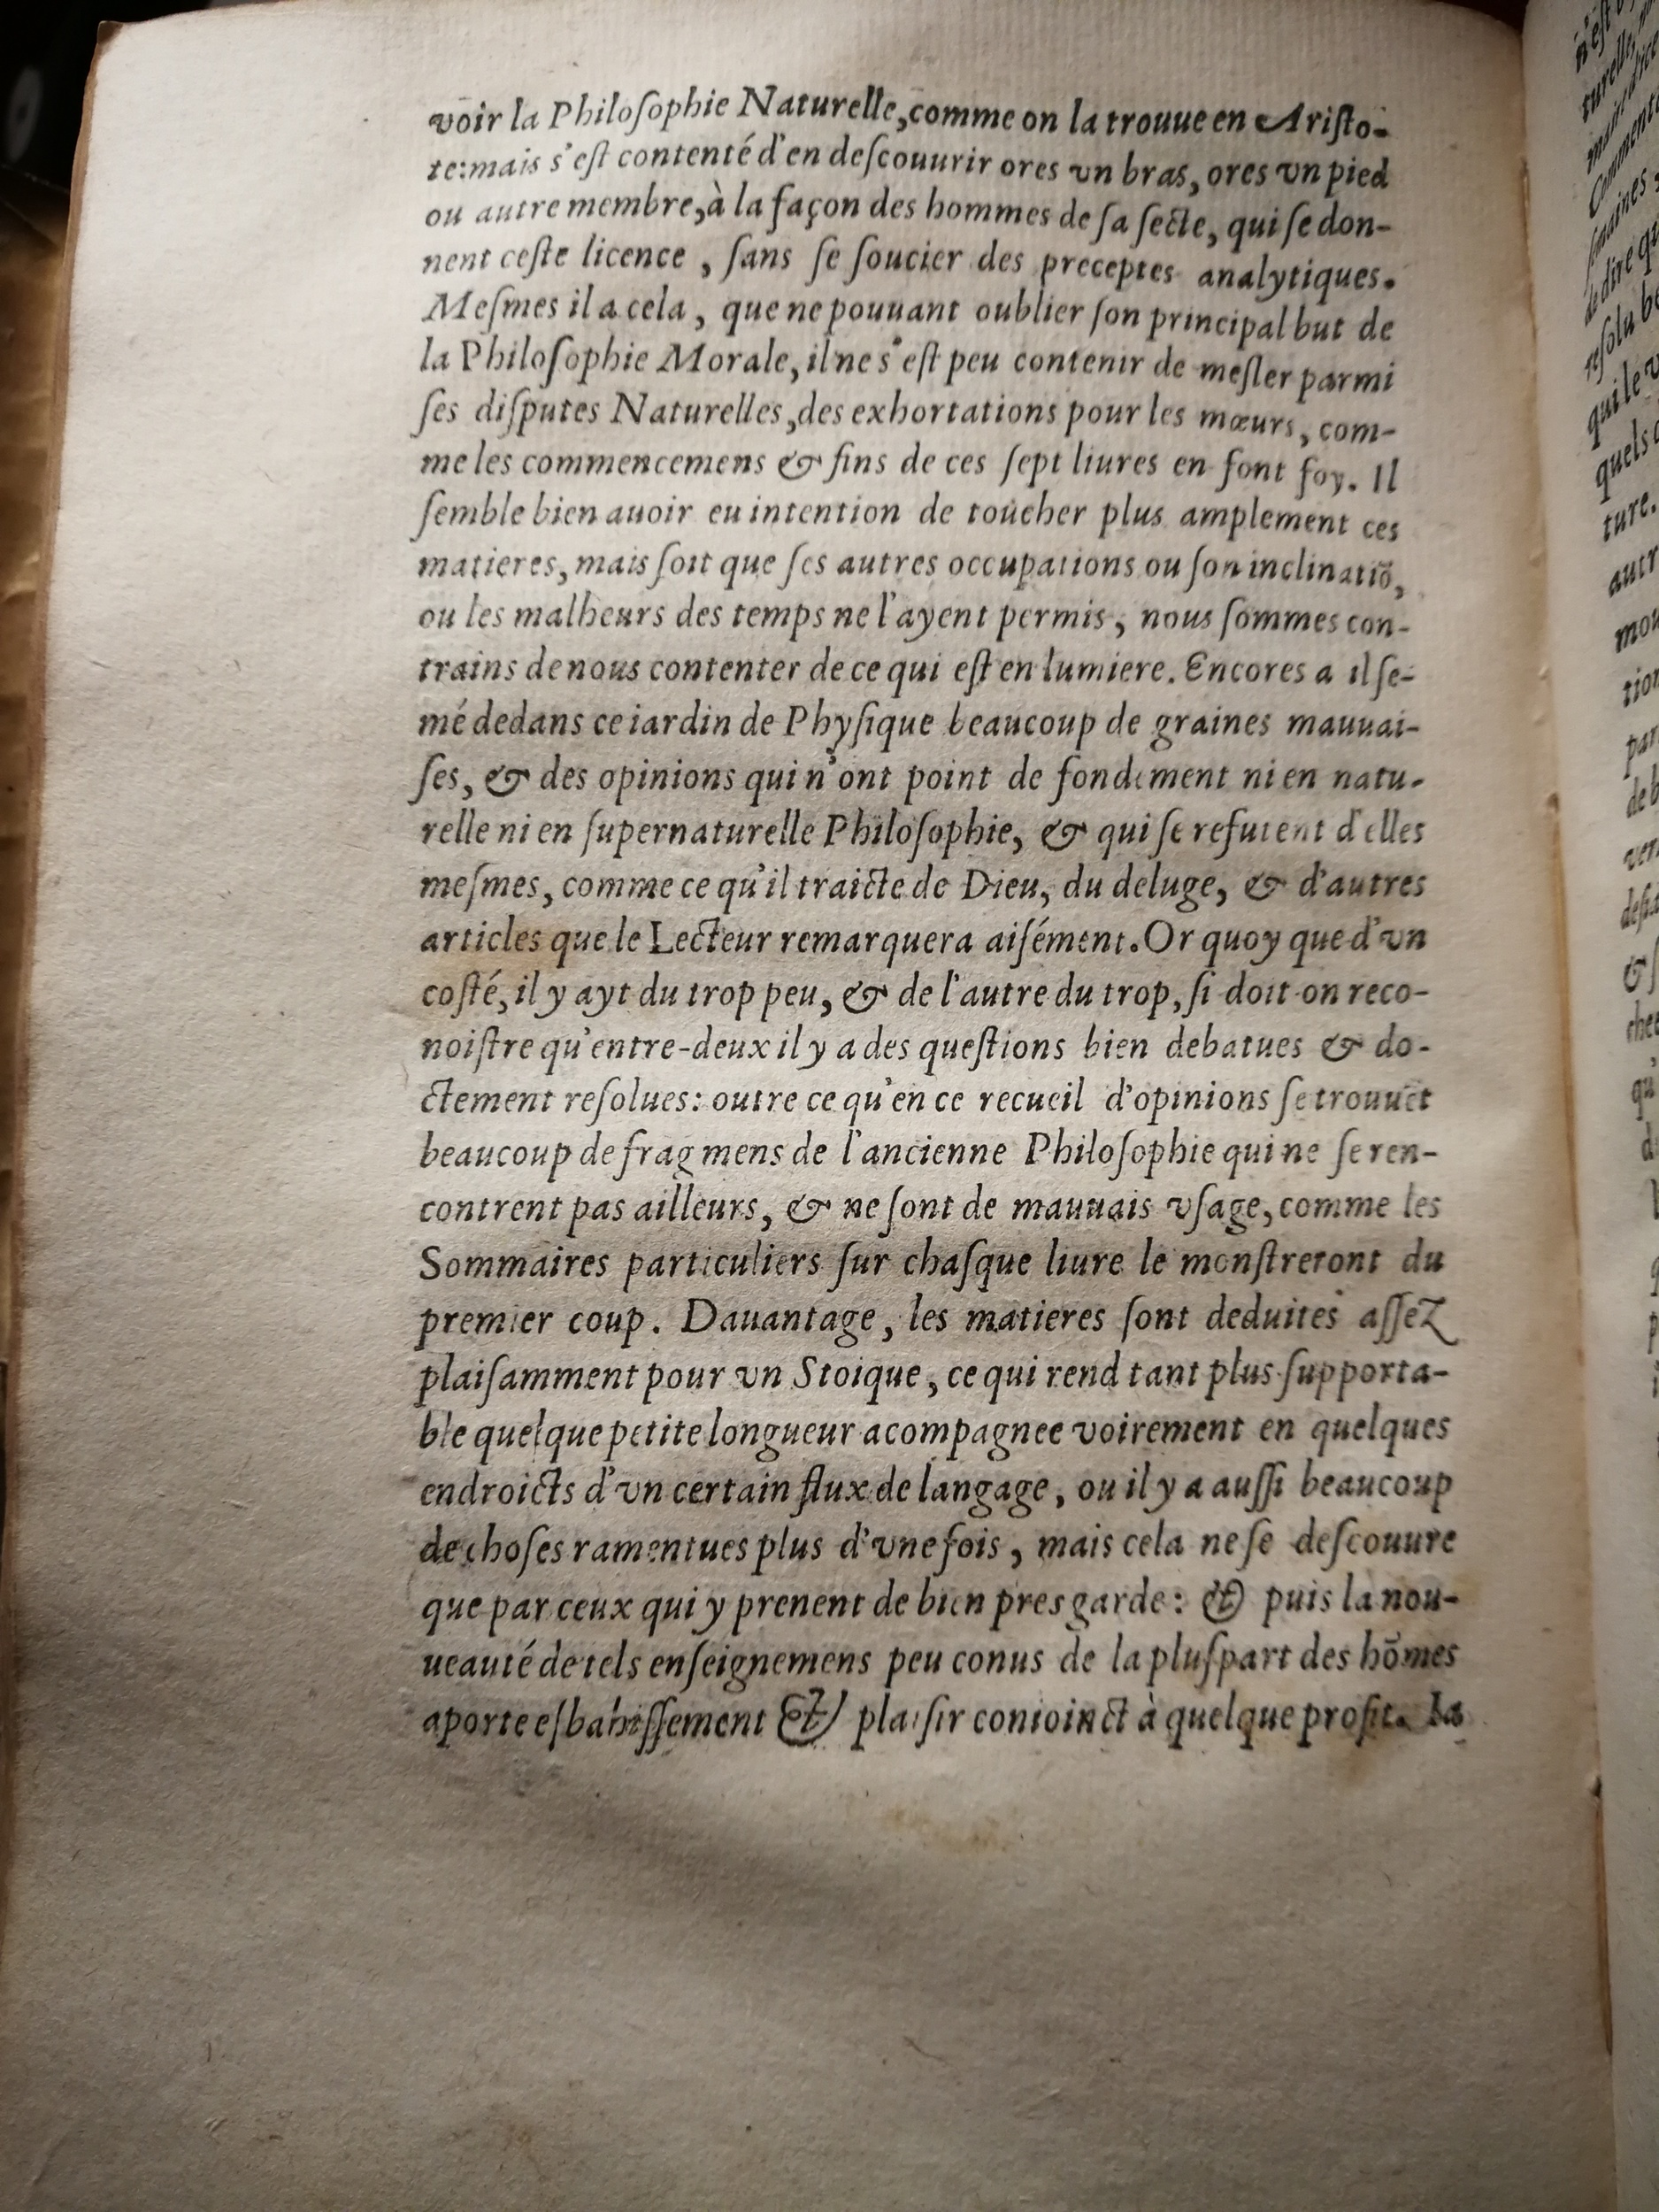 voir la Philoſophie Naturelle, comme on la trouue en Ariſto-
te: mais s'eſt contenté d'en deſcouurir ores vn bras, ores vn pied
ou autre membre, à la façon des hommes de ſa ſecte, qui ſe don-
nent ceſte licence, ſans ſe ſoucier des preceptes analytiques.
Meſmes il a cela, que ne pouuant oublier ſon principal but de
la Philoſophie Morale, il ne s'eſt peu contenir de meſler parmi
ſes diſputes Naturelles, des exhortations pour les mœurs, com-
me les commencemens & fins de ces ſept liures en font foy. Il
ſemble bien auoir eu intention de toucher plus amplement ces
matieres, mais ſoit que ſes autres occupations ou ſon inclinatiõ,
ou les malheurs des temps ne l'ayent permis, nous ſommes con-
trains de nous contenter de ce qui eſt en lumiere. Encores a il ſe-
mé dedans ce iardin de Phyſique beaucoup de graines mauuai-
ſes, & des opinions qui n'ont point de fondement ni en natu-
relle ni en ſupernaturelle Philoſophie, & qui ſe refutent d'elles
meſmes, comme ce qu'il traicte de Dieu, du deluge, & d'autres
articles que le Lecteur remarquera aiſément. Or quoy que d'vn
coſté, il y ayt du trop peu, & de l'autre du trop, ſi doit on reco-
noiſtre qu'entre-deux il y a des queſtions bien debatues & do-
ctement reſolues: outre ce qu'en ce recueil d'opinions ſe trouuẽt
beaucoup de fragmens de l'ancienne Philoſophie qui ne ſe ren-
contrent pas ailleurs, & ne ſont de mauuais vſage, comme les
Sommaires particuliers ſur chaſque liure le monſtreront du
premier coup. Dauantage, les matieres ſont deduites aſſez
plaiſamment pour vn Stoique, ce qui rend tant plus ſupporta-
ble quelque petite longueur acompagnee voirement en quelques
endroicts d'vn certain flux de langage, ou il y a auſſi beaucoup
de choſes ramentues plus d'vne fois, mais cela ne ſe deſcouure
que par ceux qui y prenent de bien pres garde: & puis la nou-
ueauté de tels enſeignemens peu conus de la pluſpart des hõmes
aporte eſbahiſſement & plaiſir conioinct à quelque profit. Ia